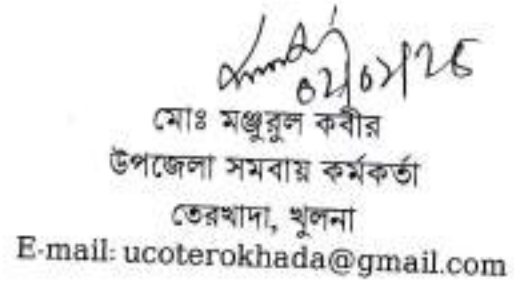 02/02/26
মোঃ মঞ্জুরুল কবীর
উপজেলা সমবায় কর্মকর্তা
তেরখাদা, খুলনা
E-mail: ucoterokhada@gmail.com